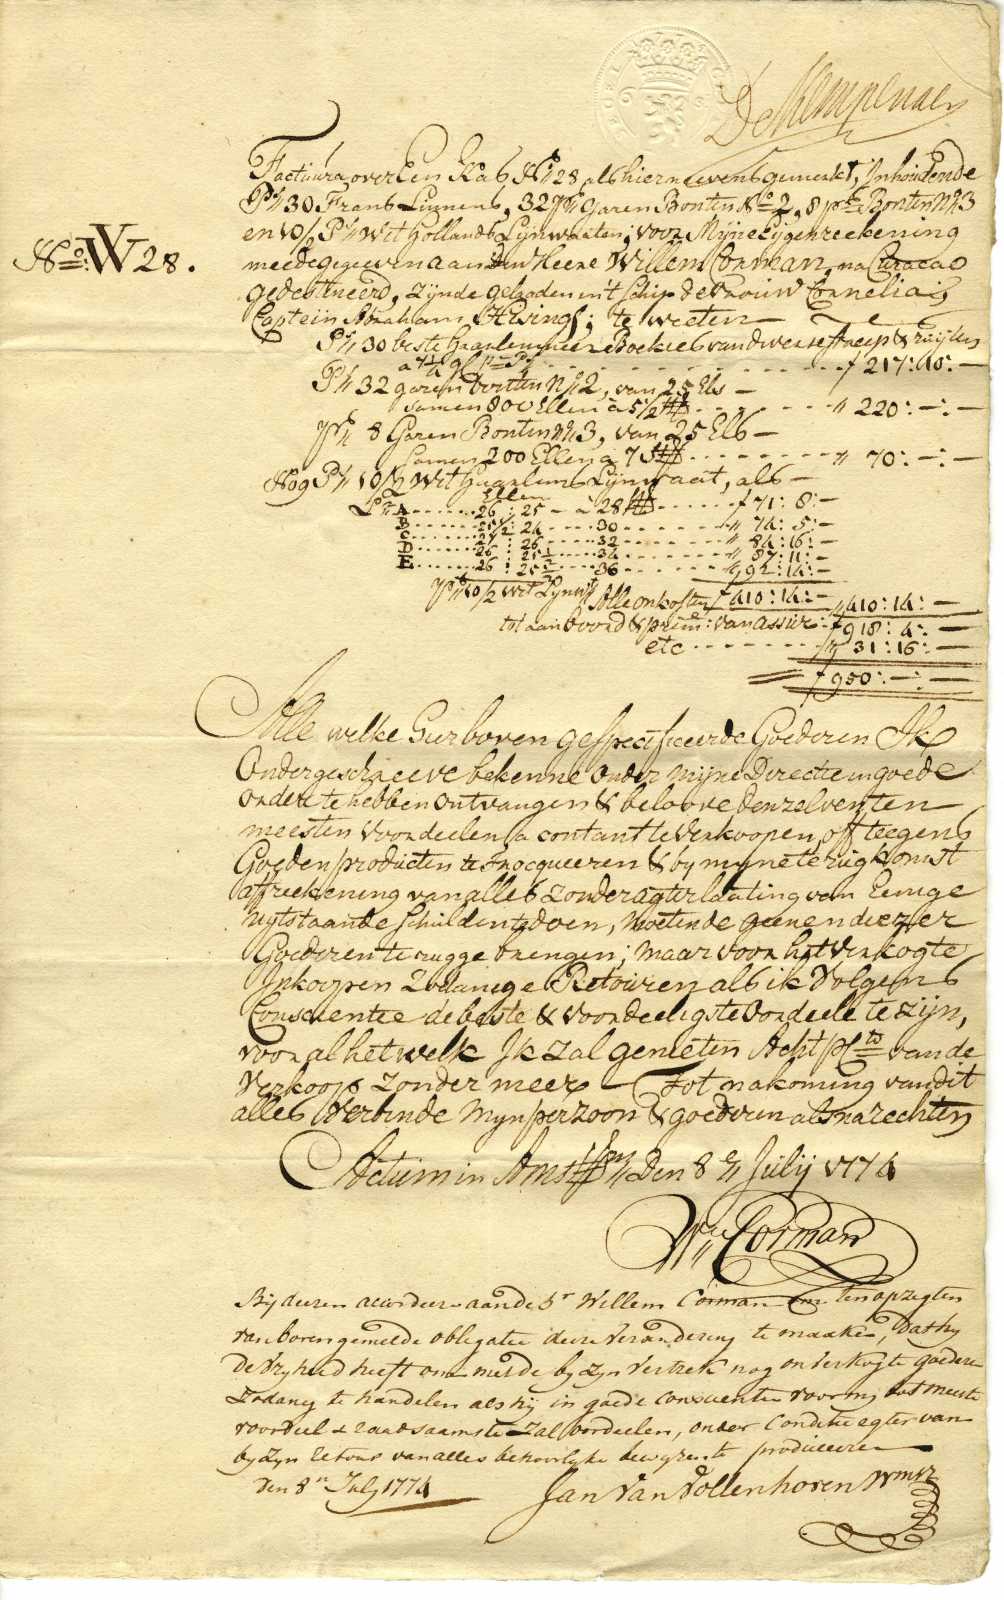 De Kempenaer
Factuura over Een Kas No 28 als hier nevens gemerkt, Inhoudende
Ps 30 Frans Linnens, 32 ps garen Bonten No 2, 8 ps Bonten No 3
en 10/2 Ps Wit Hollands Lynwaaten; voor Mijne Eijgen reekening
No W 28.
meede gegeven aan den Heere Willem Corman, na Curacao
gedestineerd, zijnde gelaaden in't schip de Vrouw Cornelia,
Captein Abraham; te weeten
Ps 30 beste Haarlemmer Boekies van dwerse streep & ruijten
a 7¼ gl ps Ps ƒ 217:10:—
Ps 32 garen bonten No 2, van 25 Els —
samen 800 Ellen a 5½ st " 220:—:—
ps 8 Garen Bonten No 3, van 25 Els —
samen 200 Ellen a 7 st " 70:—:—
Nog Ps 10/2 Wit Haarlems Lijnwaat, als —
Ellen
La A 26 : 25 — a 28 st ƒ 71:8:—
B 25½ : 24 30 " 74:5:—
C 27 : 26 32 " 84:16:—
D 26 : 25½ 34 " 87:11:—
E 26 : 25½ 36 " 92:14:—
ps 10/2 Wit Lynwt ƒ 410:14:— " 410:14:—
Alle onkosten ƒ 918:4:—
tot aan boord & prem: van assur:
etc " 31:16:—
ƒ 950:—:—
Alle welke hier boven gespecificeerde Goederen Ik
Ondergeschreeve bekenne onder mijne Directie in goede
ordere te hebben ontvangen & beloove denzelven ten
meesten voordeelen a contant te verkoopen, off teegens
Goede producten te trocqueeren & by myne terugkomst
affreekening van alles zonder agterlaating van Eenige
uytstaande schulden te doen, moetende geenen dezer
Goederen te rugge brengen; maar voor het verkogte
Inkoopen zodanige Retouren als ik volgens
Conscientie de beste & voordeeligste oordeele te zijn,
voor al het welk Ik zal genieten Acht pCto van de
Verkoop zonder meer — Tot nakoming van dit
alles verbinde mijn perzoon & goederen als na rechten
Actum in Amst Den 8 Julij 1774
Wm Corman
Bij deezen accordeere aan de Sr Willem Corman om ten opzigten
van boven gemelde obligatie deeze verandering te maaken, dat hy
de vryheid heeft om meede by zyn vertrek nog onverkogte goederen
zodanig te handelen als hij in goede conscientie voor my tot meeste
voordeel & raadsaamste zal oordeelen, onder Conditie egter van
by zyn retour van alles behoorlyke bewyzen te produceeren
den 8n July 1774
Jan Van Vollenhoven Wmsz